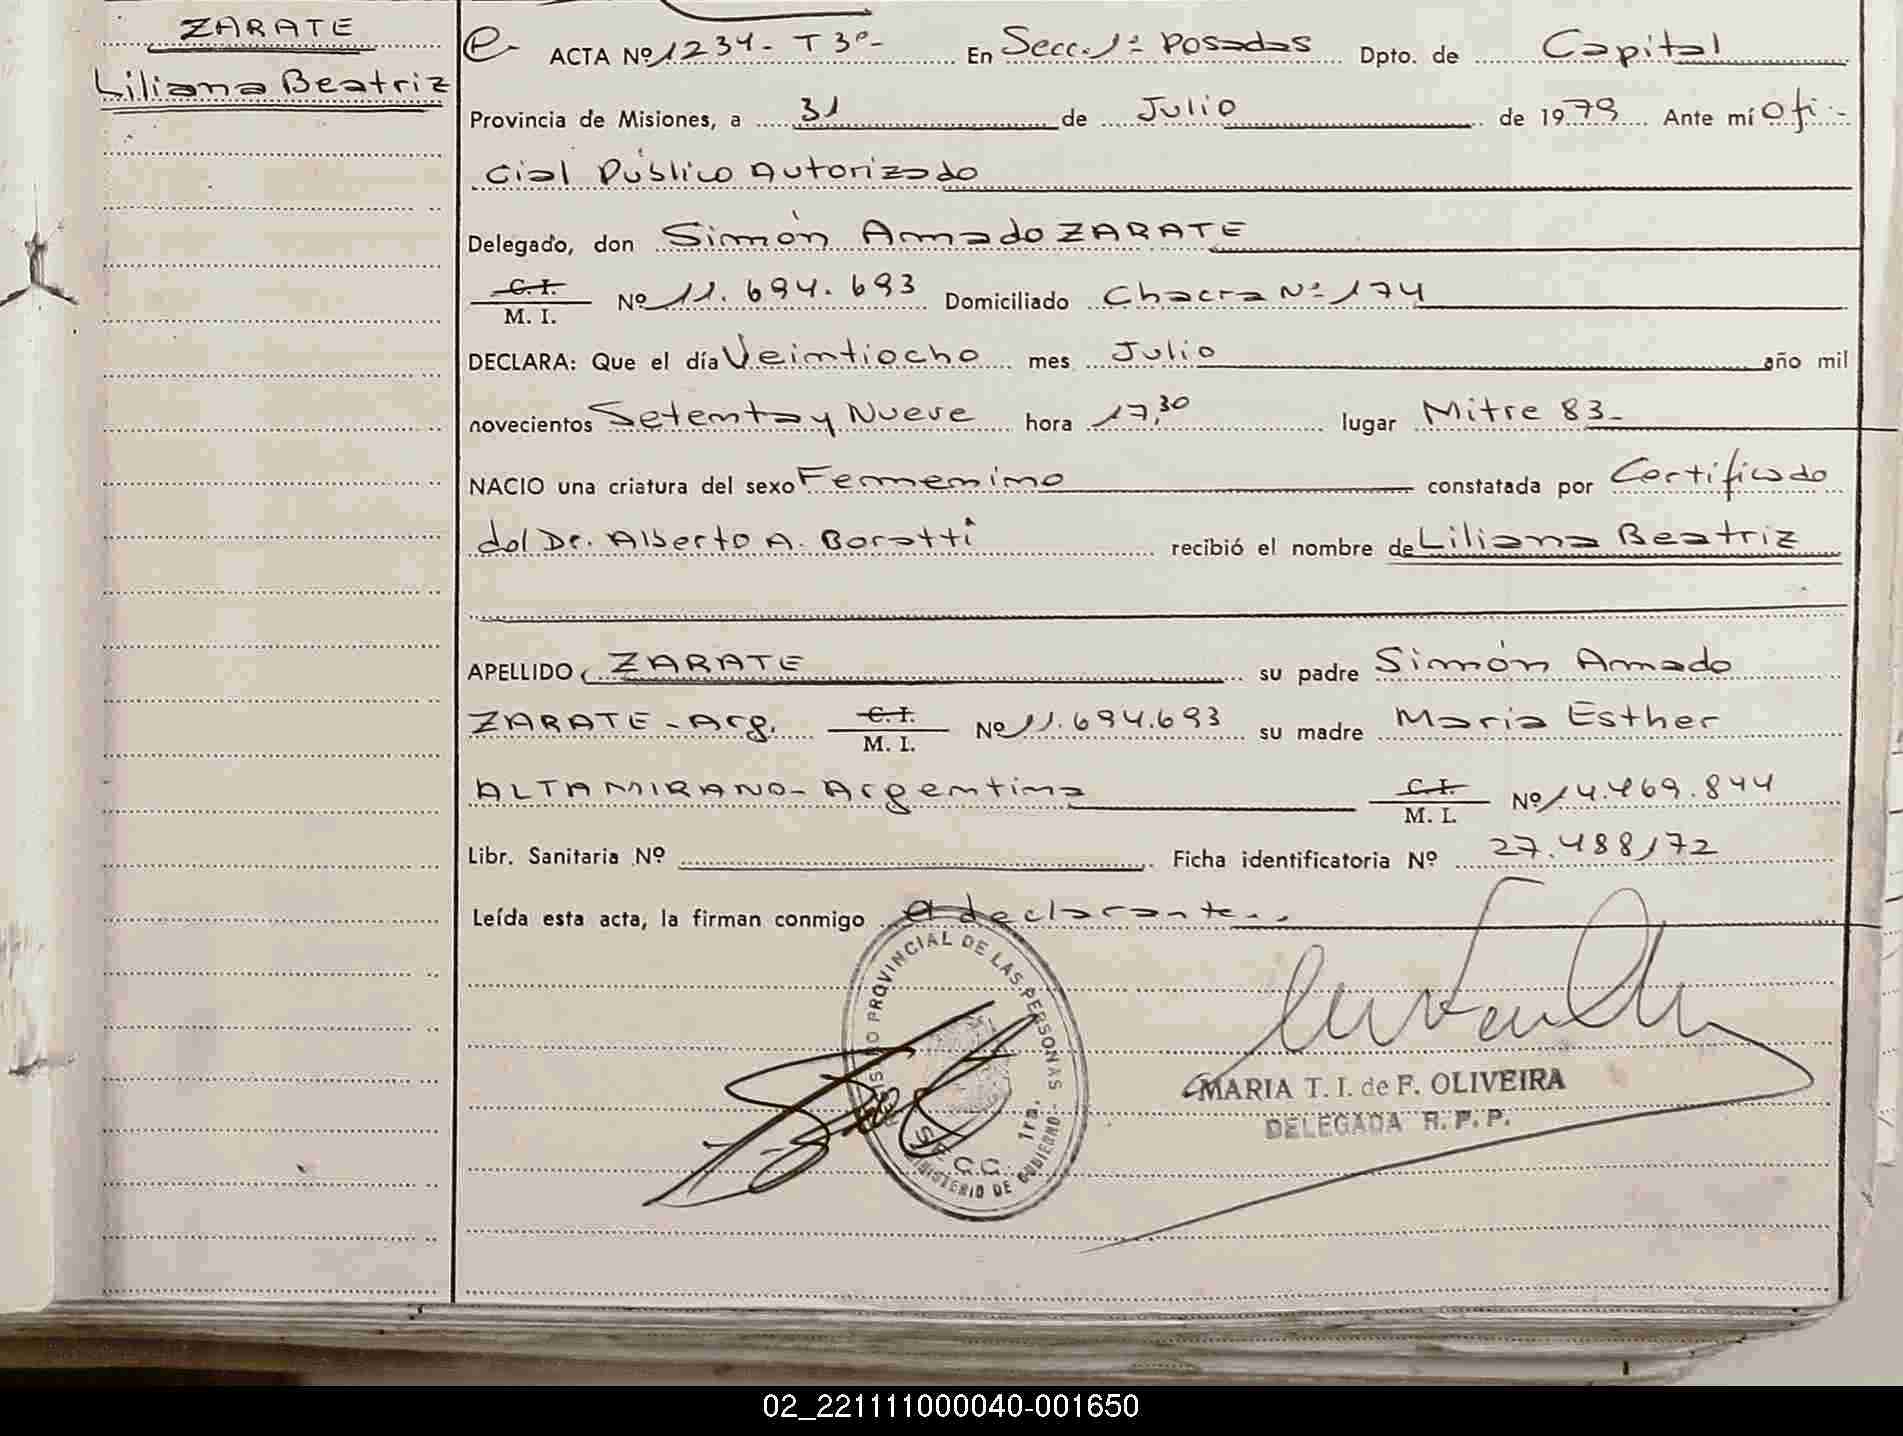 ZARATE
Liliana Beatriz
ACTA Nº 1234- T 3º- En Secc. 1ª Posadas Dpto. de Capital
Provincia de Misiones, a 31 de Julio de 1979 Ante mí Ofi-
cial Público Autorizado
Delegado, don Simón Amado ZARATE
C. I.
M. I. Nº 11.694.693 Domiciliado Chacra Nº 174
DECLARA: Que el día Veintiocho mes Julio año mil
novecientos Setenta y Nueve hora 17,30 lugar Mitre 83-
NACIO una criatura del sexo Femenino constatada por Certificado
del Dr. Alberto A. Boratti recibió el nombre de Liliana Beatriz
APELLIDO ZARATE su padre Simón Amado
ZARATE - Arg. C. I. M. I. Nº 11.694.693 su madre Maria Esther
ALTAMIRANO - Argentina C. I. M. I. Nº 14.469.844
Libr. Sanitaria Nº Ficha identificatoria Nº 27.488/72
Leída esta acta, la firman conmigo el declarante.
REGISTRO PROVINCIAL DE LAS PERSONAS
MINISTERIO DE GOBIERNO
1ra.
MARIA T. I. de F. OLIVEIRA
DELEGADA R. P. P.
02_221111000040-001650